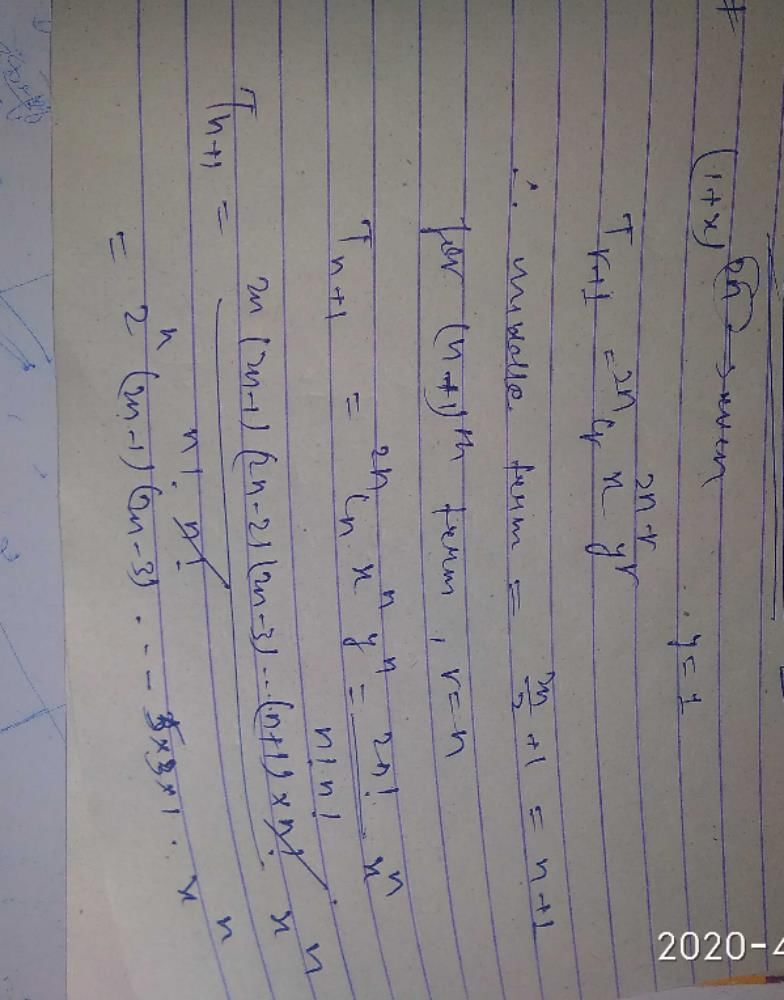 (1+x)^{2n} → even y=1
T_{r+1} = ^{2n}C_r x^{2n-r} y^r
∴ middle term = \frac{2n}{2} + 1 = n+1
for (n+1)^{th} term, r=n
T_{n+1} = ^{2n}C_n x^n y^n = \frac{2n!}{n! n!} x^n
T_{n+1} = \frac{2n (2n-1) (2n-2) (2n-3) ... (n+1) × n!}{n! n!} x^n
= 2^n (2n-1) (2n-3) ... 5×3×1 . x^n
2020-4